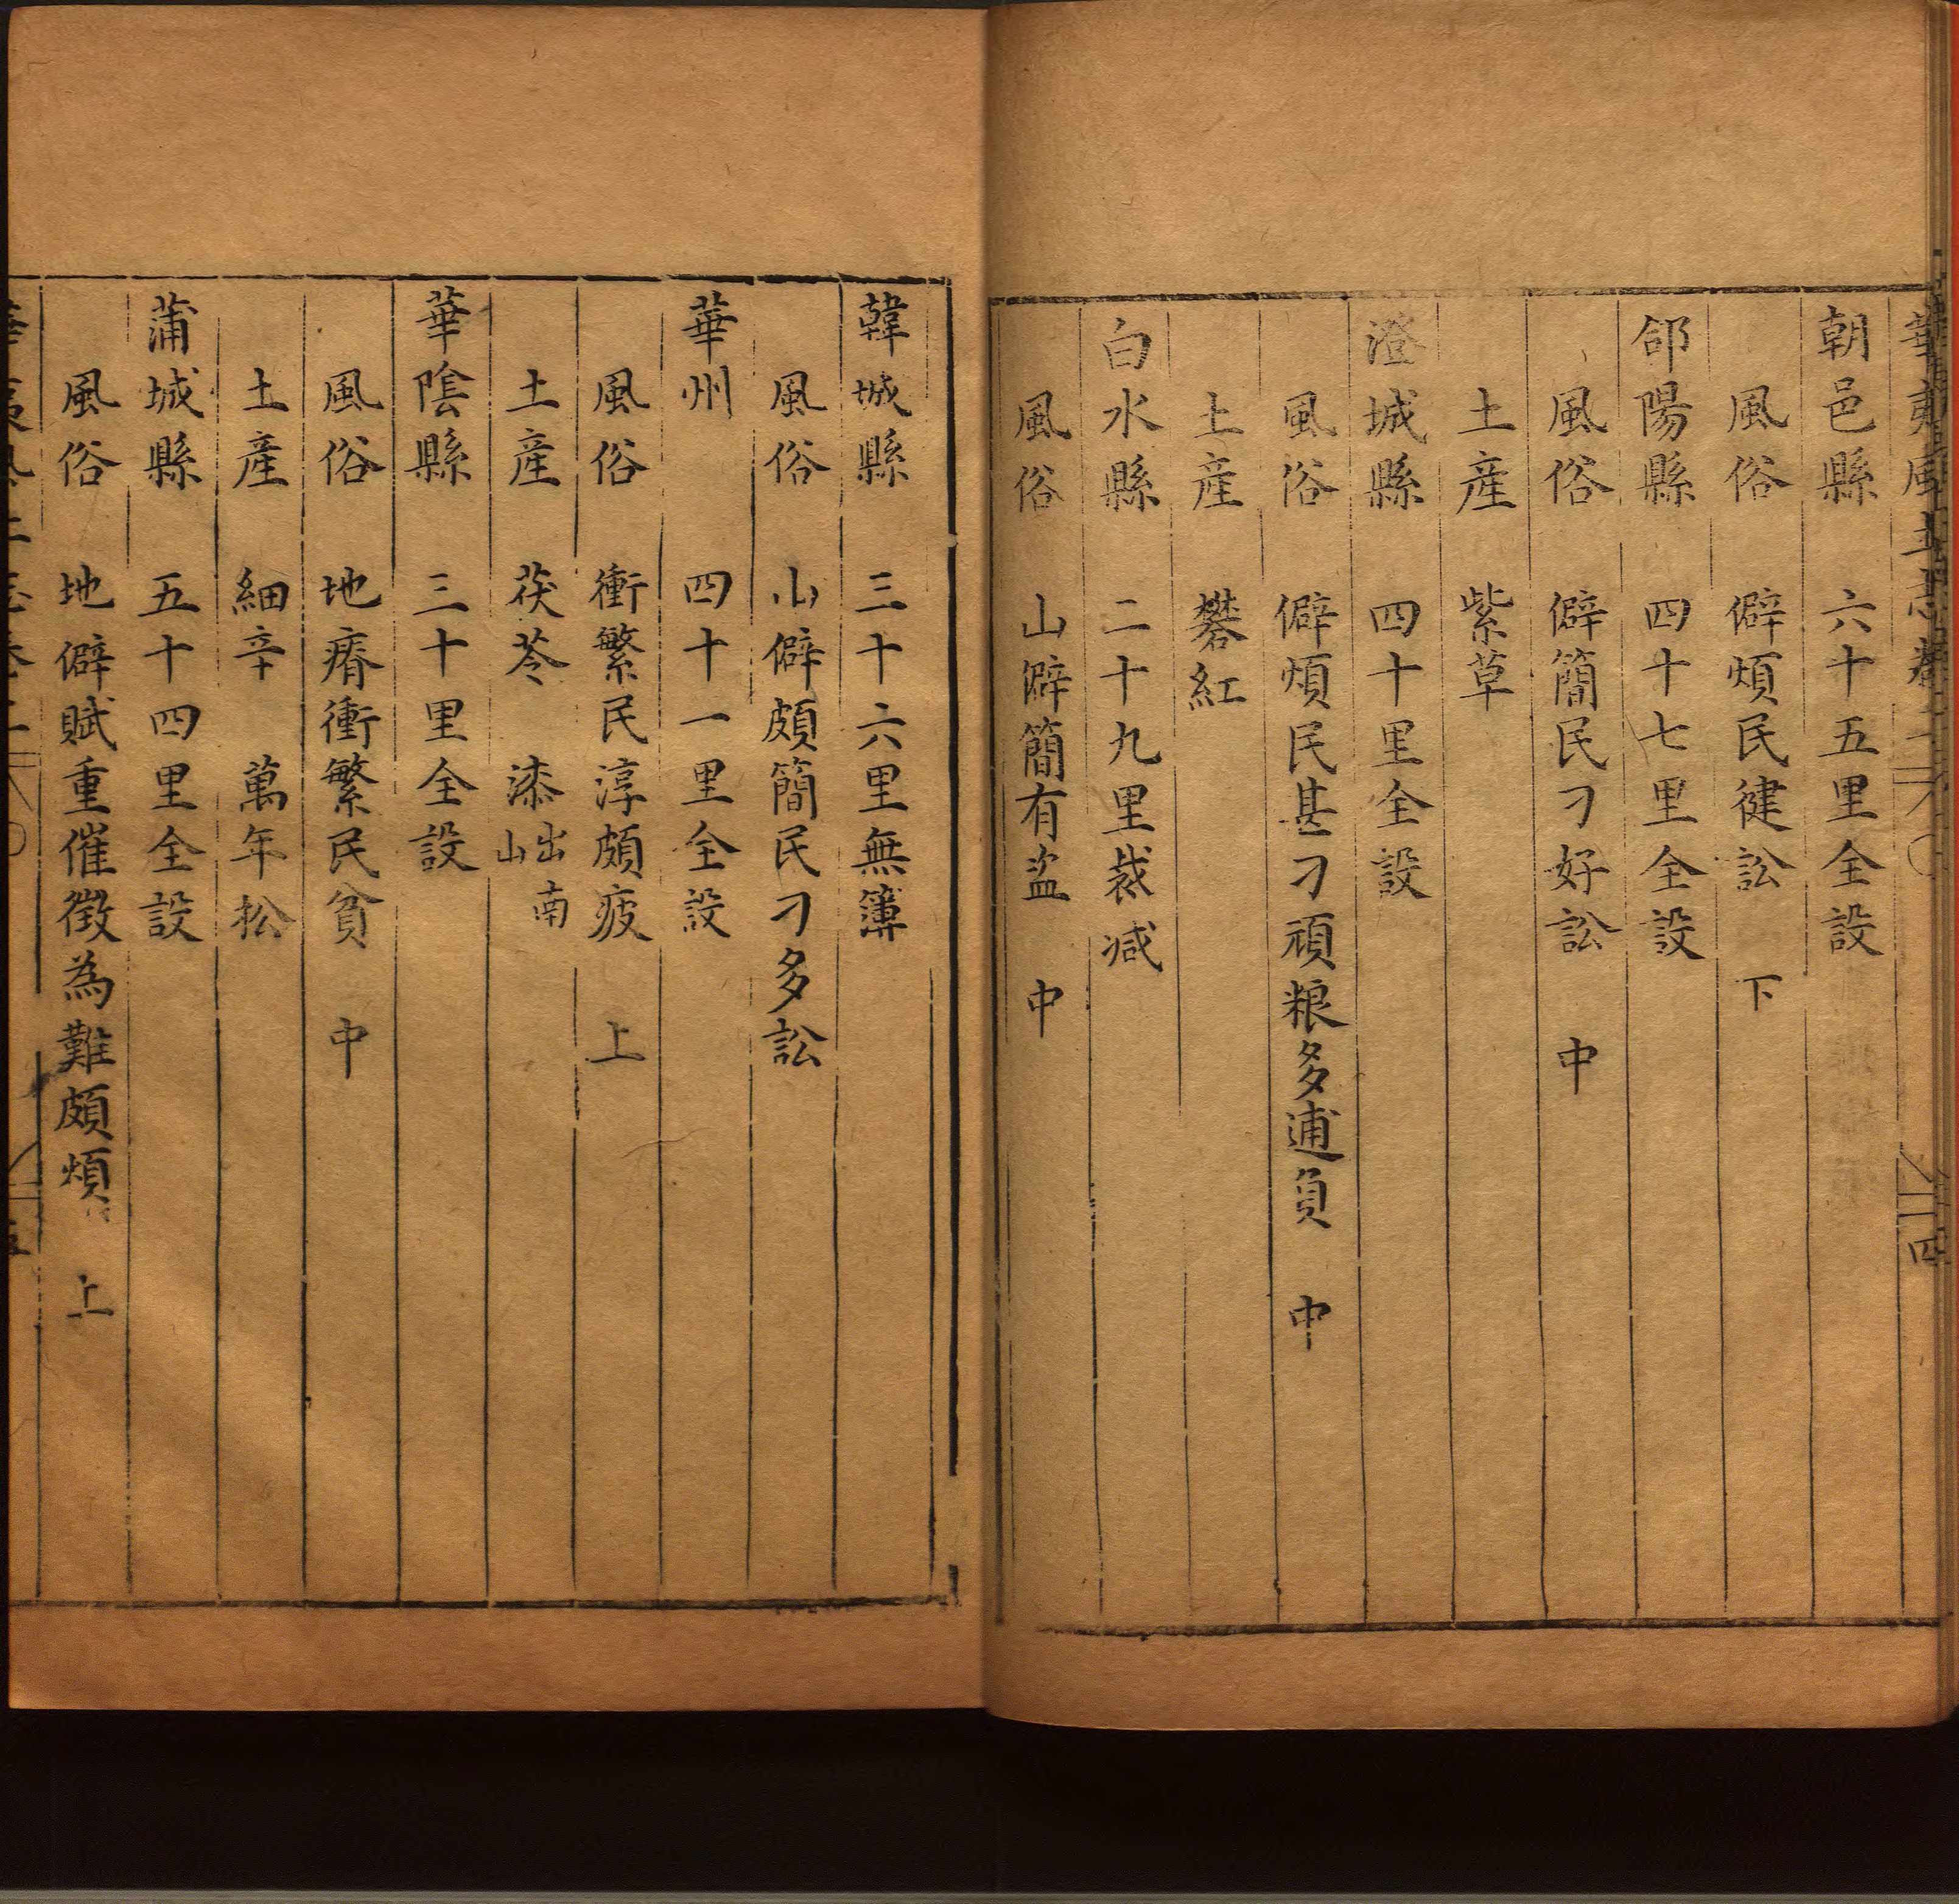 華夷風土志卷二 四
朝邑縣 六十五里全設
風俗 僻煩民健訟 下
郃陽縣 四十七里全設
風俗 僻簡民刁好訟 中
土產 紫草
澄城縣 四十里全設
風俗 僻煩民甚刁頑粮多逋負 中
土產 礬紅
白水縣 二十九里裁减
風俗 山僻簡有盜 中
韓城縣 三十六里無簿
風俗 山僻頗簡民刁多訟
華州 四十一里全設
風俗 衝繁民淳頗疲 上
土產 茯苓 漆出南山
華陰縣 三十里全設
風俗 地瘠衝繁民貧 中
土產 細辛 萬年松
蒲城縣 五十四里全設
風俗 地僻賦重催徵為難頗煩 上